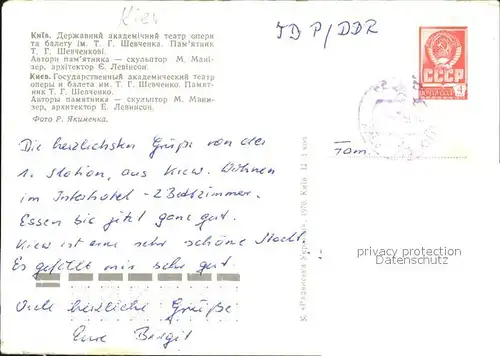 Kiev
Київ. Державний академічний театр опери
та балету ім. Т. Г. Шевченка. Пам'ятник
Т. Г. Шевченкові.
Автори пам'ятника — скульптор М. Мані-
зер, архітектор Є. Левінсон.
Киев. Государственный академический театр
оперы и балета им. Т. Г. Шевченко. Памят-
ник Т. Г. Шевченко.
Авторы памятника — скульптор М. Мани-
зер, архитектор Е. Левинсон.
Фото Р. Якименка.
TD P/DDR
СССР
Fam.
Die herzlichsten Grüße von der
1. Station, aus Kiew. Wohnen
im Interhotel - 2 Bettzimmer.
Essen bis jetzt ganz gut.
Kiew ist eine sehr schöne Stadt.
Es gefällt mir sehr gut.
Viele herzliche Grüße
Eure Bergit
К. «Радянська Україна». 1970. Київ. 12 1 коп.
privacy protection
Datenschutz